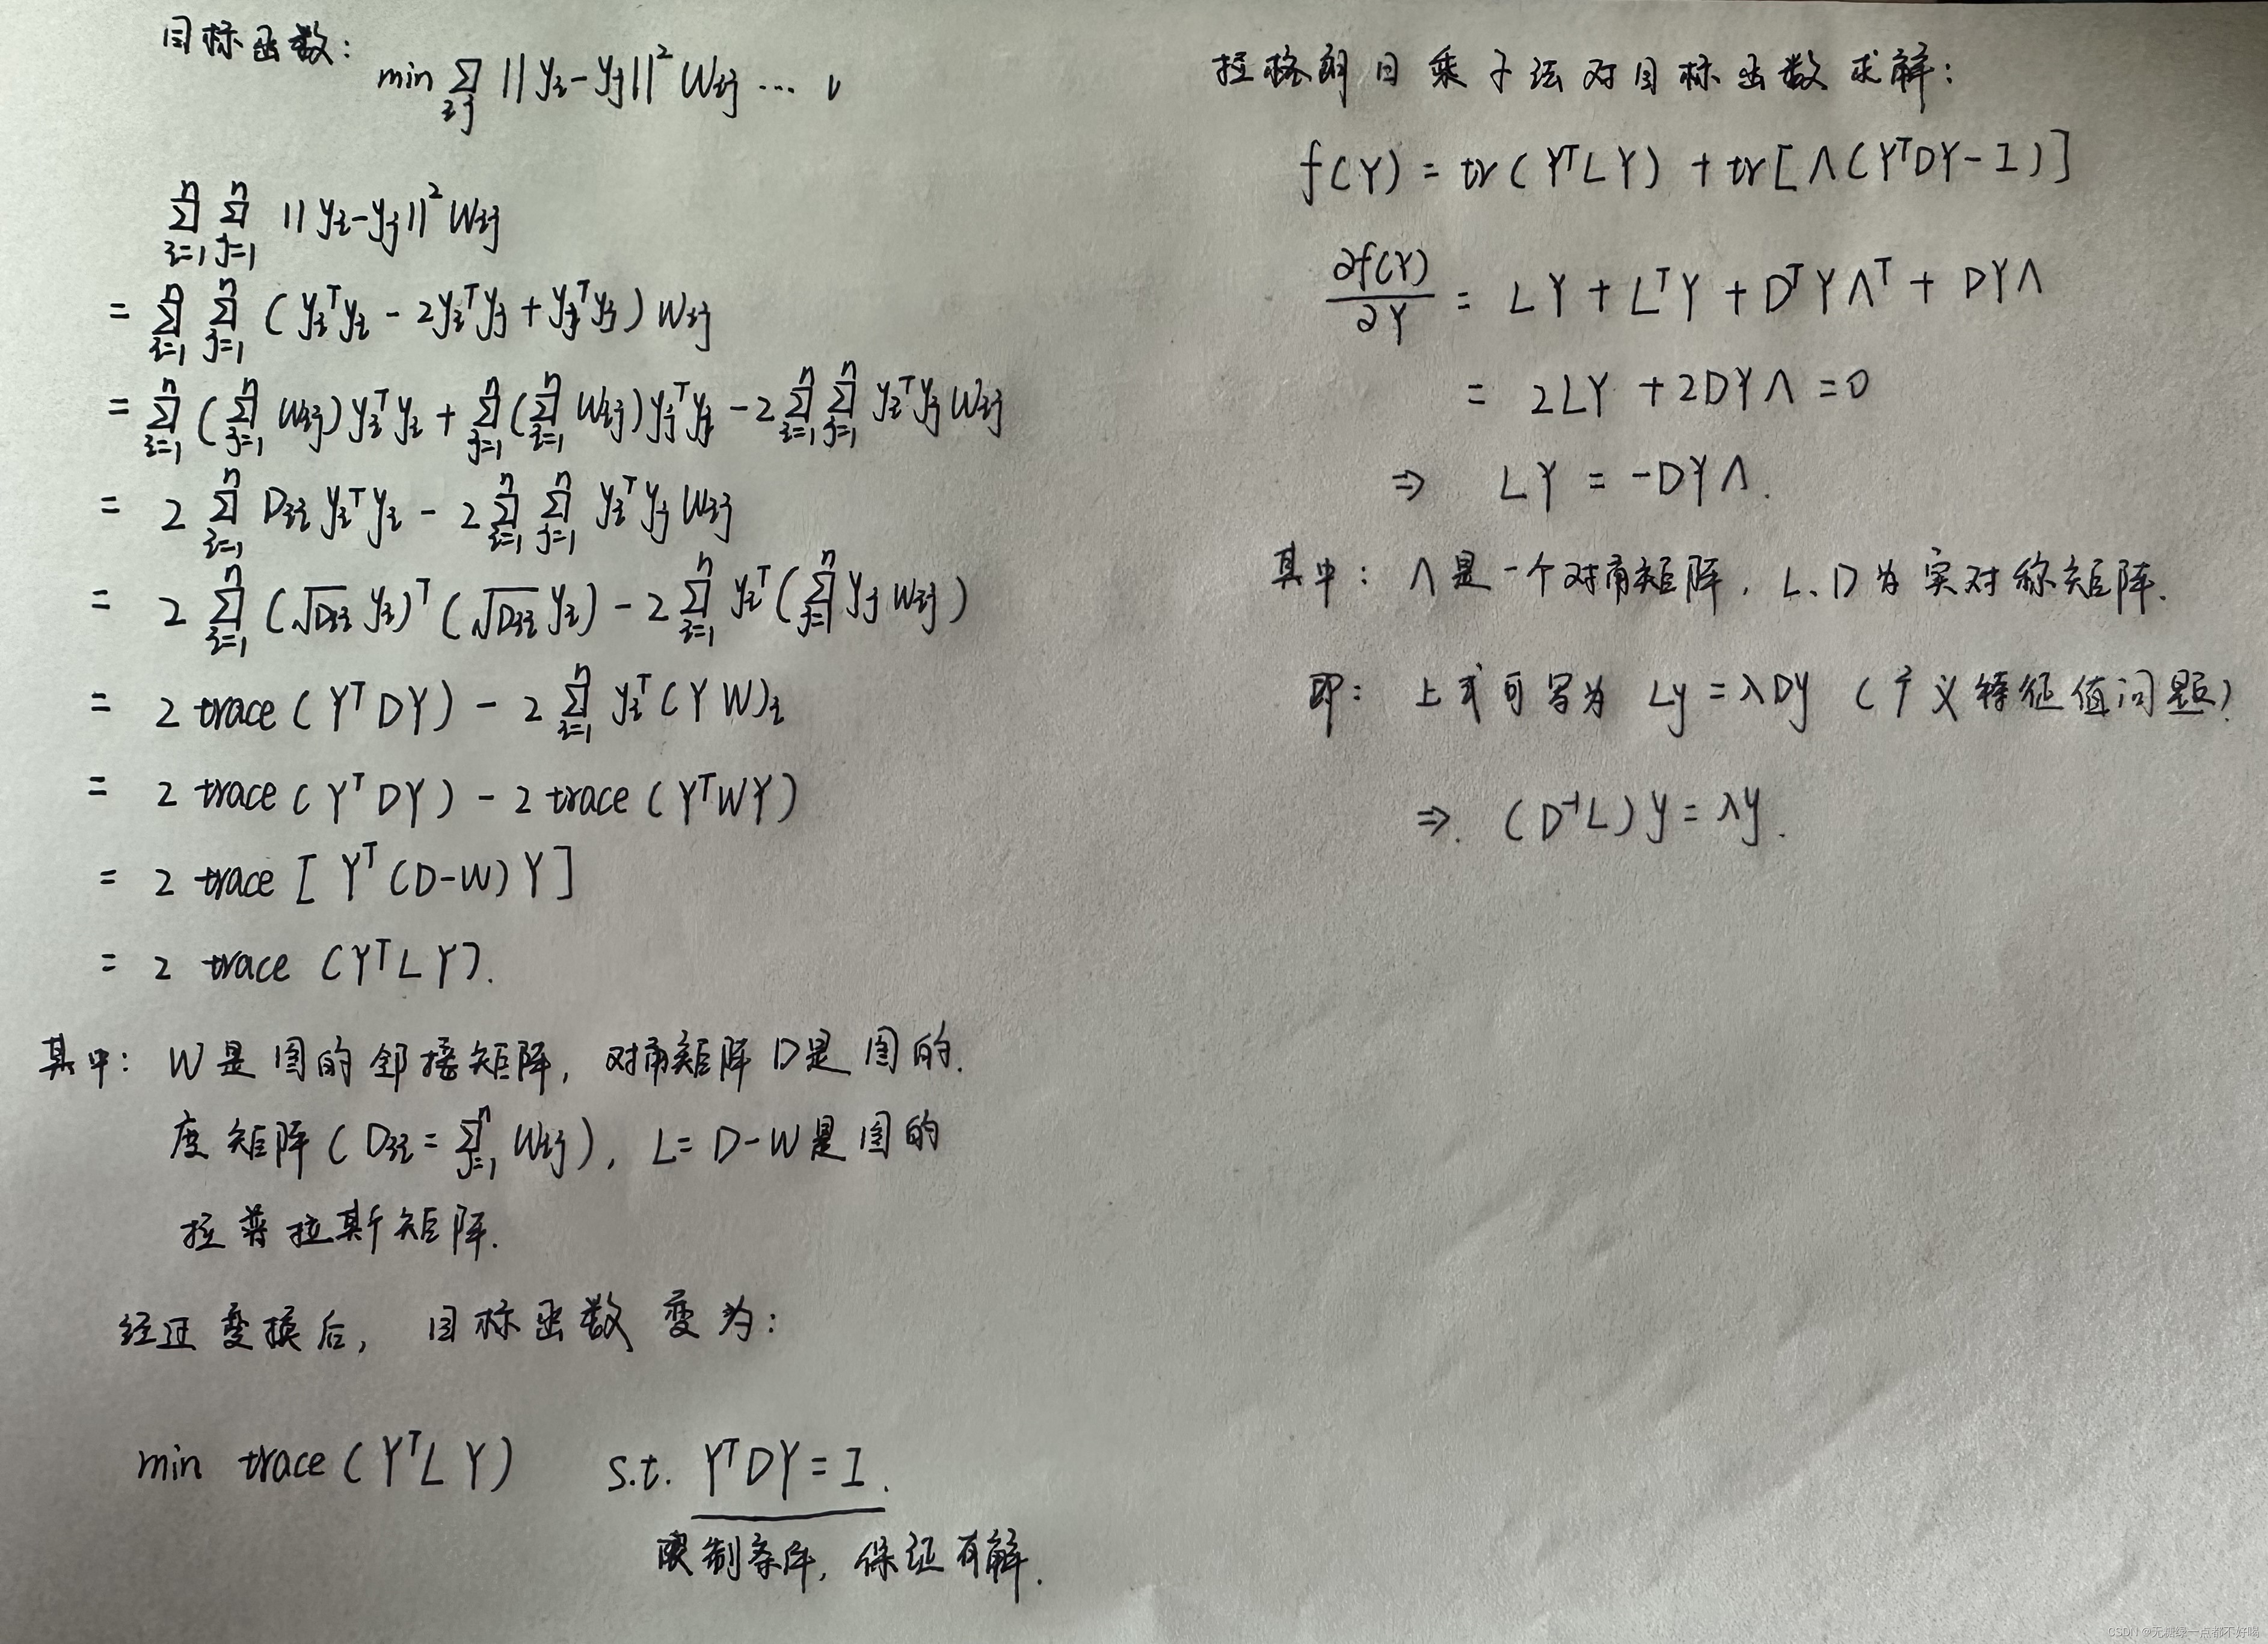 目标函数:
min ∑_{ij} ||y_i-y_j||² W_{ij} ... 1
∑_{i=1}^{n} ∑_{j=1}^{n} ||y_i-y_j||² W_{ij}
= ∑_{i=1}^{n} ∑_{j=1}^{n} (y_i^T y_i - 2y_i^T y_j + y_j^T y_j) W_{ij}
= ∑_{i=1}^{n} (∑_{j=1}^{n} W_{ij}) y_i^T y_i + ∑_{j=1}^{n} (∑_{i=1}^{n} W_{ij}) y_j^T y_j - 2∑_{i=1}^{n} ∑_{j=1}^{n} y_i^T y_j W_{ij}
= 2 ∑_{i=1}^{n} D_{ii} y_i^T y_i - 2∑_{i=1}^{n} ∑_{j=1}^{n} y_i^T y_j W_{ij}
= 2 ∑_{i=1}^{n} (√D_{ii} y_i)^T (√D_{ii} y_i) - 2∑_{i=1}^{n} y_i^T (∑_{j=1}^{n} y_j W_{ij})
= 2 trace (Y^T DY) - 2 ∑_{i=1}^{n} y_i^T (YW)_i
= 2 trace (Y^T DY) - 2 trace (Y^T WY)
= 2 trace [Y^T (D-W) Y]
= 2 trace (Y^T L Y).
其中: W是图的邻接矩阵, 对角矩阵D是图的.
度矩阵 (D_{ii} = ∑_{j=1}^{n} W_{ij}), L= D-W是图的
拉普拉斯矩阵.
经过变换后, 目标函数变为:
min trace (Y^T L Y) s.t. Y^T DY = I.
限制条件, 保证有解.
拉格朗日乘子法对目标函数求解:
f(Y) = tr(Y^T LY) + tr[Λ(Y^T DY - I)]
∂f(Y)/∂Y = LY + L^T Y + D^T YΛ^T + DYΛ
= 2LY + 2DYΛ = 0
⇒ LY = -DYΛ.
其中: Λ是一个对角矩阵, L、D为实对称矩阵.
即: 上式可写为 Ly = λDy (广义特征值问题)
⇒. (D^{-1}L) y = λy.
CSDN @无糖绿一点都不好喝